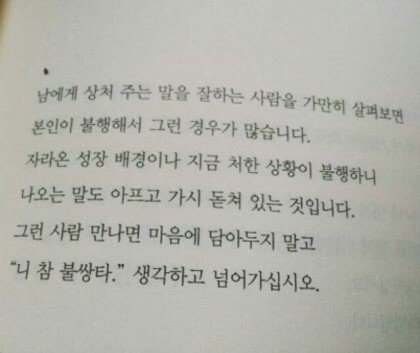 남에게 상처 주는 말을 잘하는 사람을 가만히 살펴보면
본인이 불행해서 그런 경우가 많습니다.
자라온 성장 배경이나 지금 처한 상황이 불행하니
나오는 말도 아프고 가시 돋쳐 있는 것입니다.
그런 사람 만나면 마음에 담아두지 말고
“니 참 불쌍타.” 생각하고 넘어가십시오.